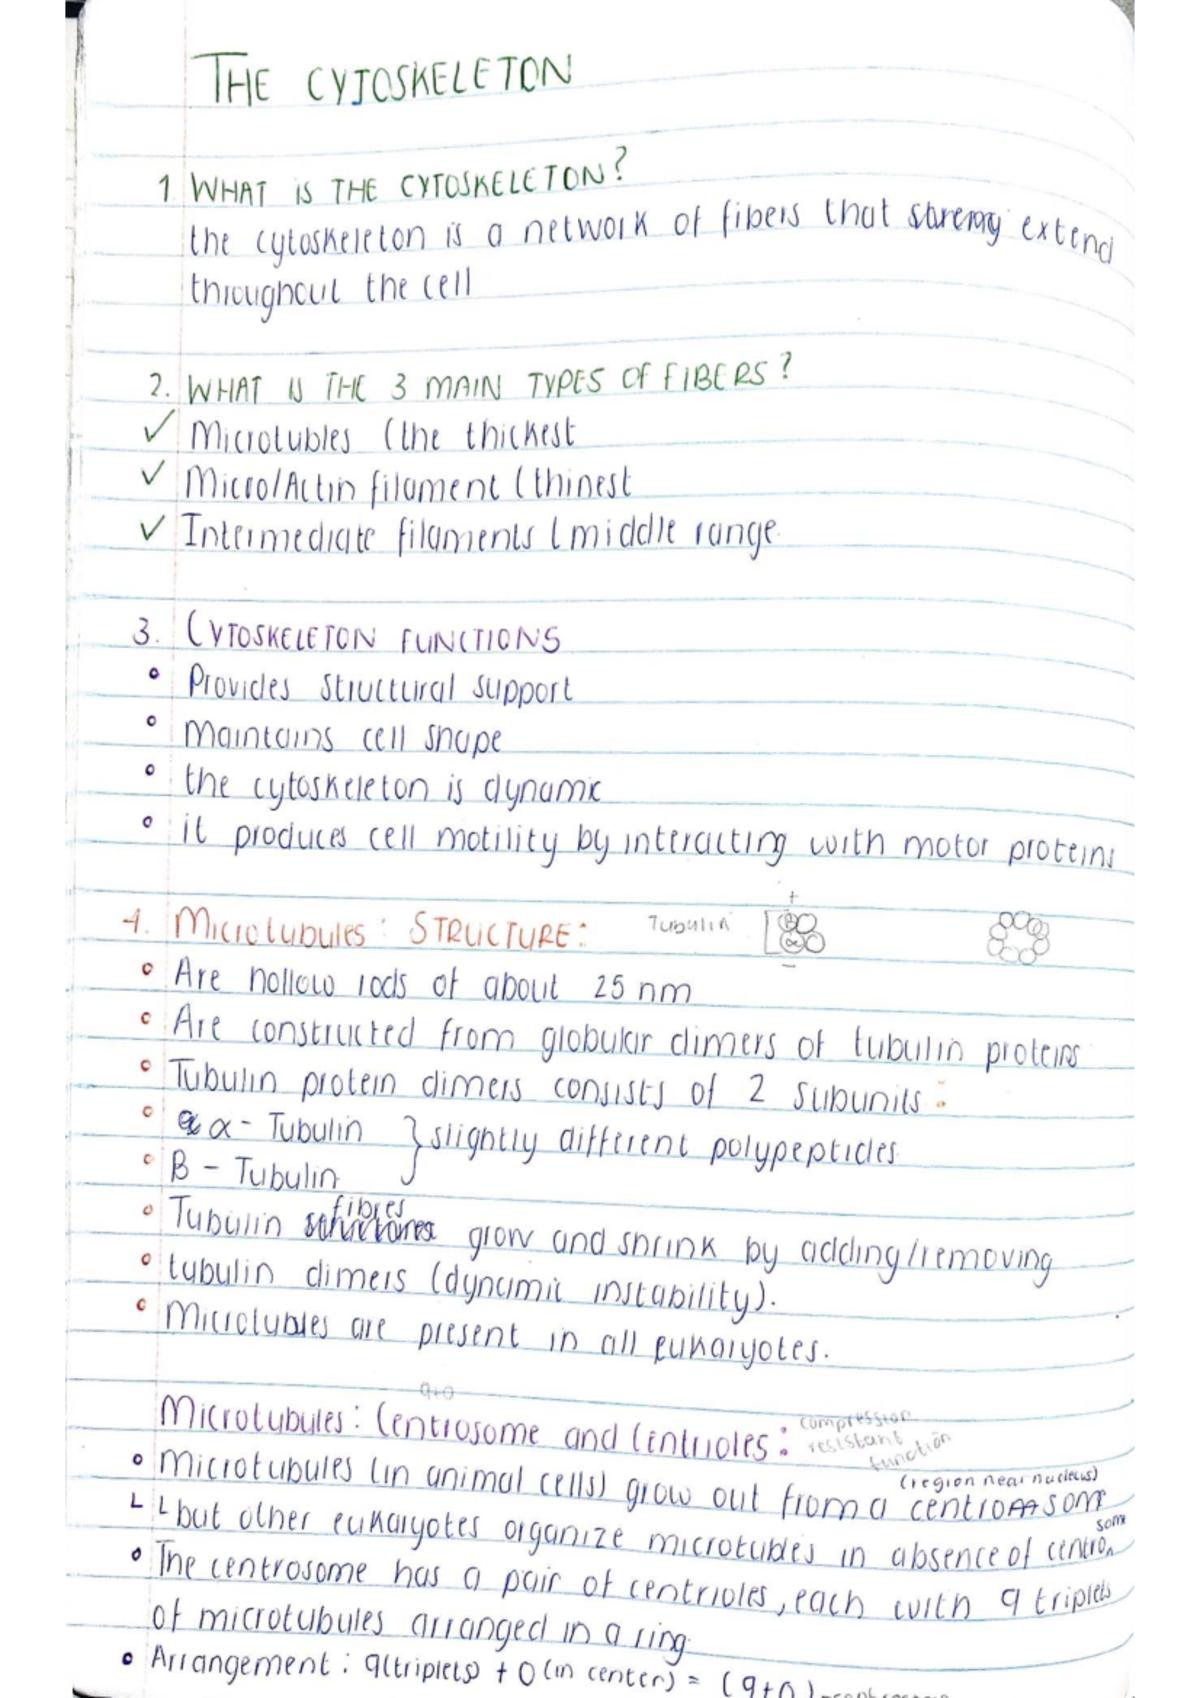 THE CYTOSKELETON
1. WHAT IS THE CYTOSKELETON?
the cytoskeleton is a network of fibers that extend
throughout the cell
2. WHAT IS THE 3 MAIN TYPES OF FIBERS?
✓ Microtubles (the thickest
✓ Micro/Actin filament (thinest
✓ Intermediate filaments (middle range
3. CYTOSKELETON FUNCTIONS
° Provides structural support
° Maintains cell shape
° the cytoskeleton is dynamic
° it produces cell motility by interacting with motor proteins
+
4. Microtubules: STRUCTURE: Tubulin B
α
−
° Are hollow rods of about 25 nm
° Are constructed from globular dimers of tubulin proteins
° Tubulin protein dimers consists of 2 subunits:
° α - Tubulin } slightly different polypeptides
° B - Tubulin
fibres
° Tubulin grow and shrink by adding/removing
° tubulin dimers (dynamic instability).
° Microtubles are present in all eukaryotes.
9+0
Microtubules: Centrosome and Centrioles: compression
resistant
function
(region near nucleus)
° Microtubules (in animal cells) grow out from a centrosom
└ └ but other eukaryotes organize microtubles in absence of centro
som
° The centrosome has a pair of centrioles, each with 9 triplets
of microtubules arranged in a ring
° Arrangement: 9(triplets) + 0 (in center) = (9+0)